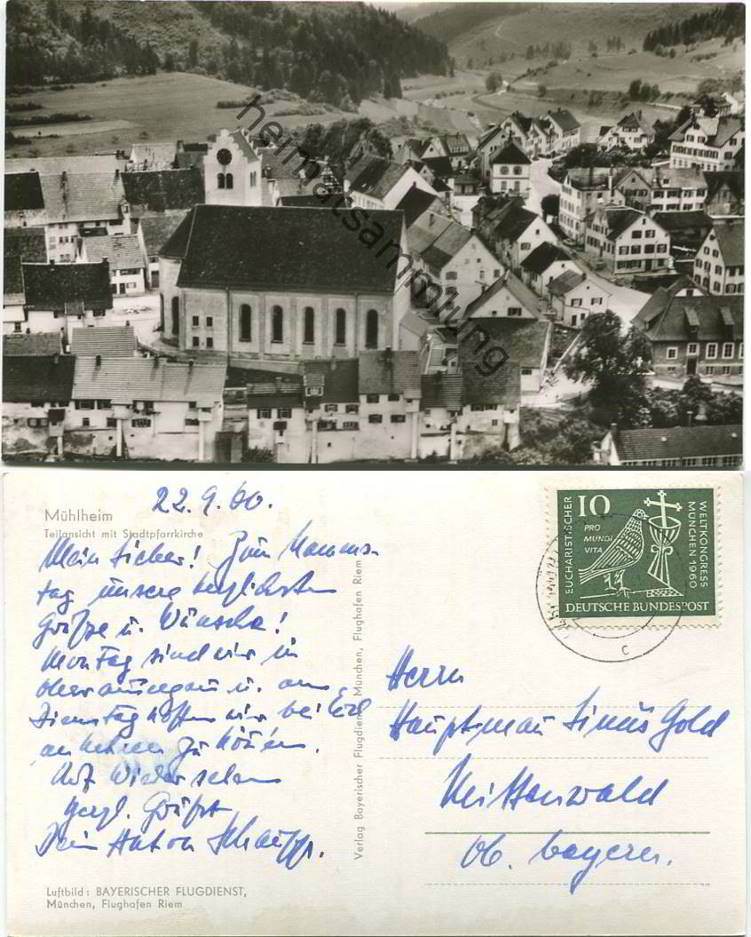 heimatsammlung
22.9.60.
Mühlheim
Teilansicht mit Stadtpfarrkirche
Mein Lieber! Zum Namens-
tag unsere herzlichsten
Grüße u. Wünsche!
Montag sind wir in
Oberammergau u. am
Dienstag hoffen wir bei Euch
zu können.
Auf Wiedersehen
Herzl. Grüße
Dein Anton
Luftbild: BAYERISCHER FLUGDIENST,
München, Flughafen Riem
Verlag Bayerischer Flugdienst München, Flughafen Riem
10
PRO
MUNDI
VITA
EUCHARISTISCHER
WELTKONGRESS
MÜNCHEN 1960
DEUTSCHE BUNDESPOST
c
Herrn
Hauptmann Gold
Mittenwald
Ob. bayern.